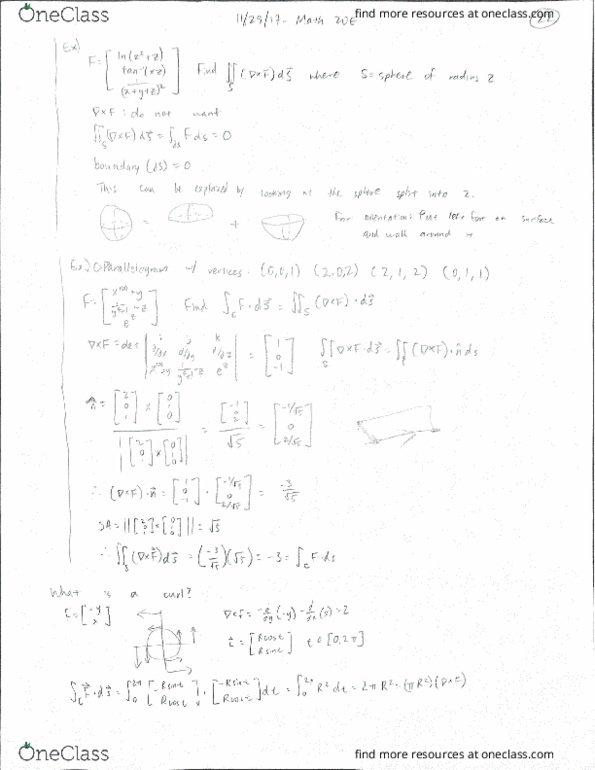 OneClass
find more resources at oneclass.com
11/29/17 - Math 20E
22
Ex)
F = [ln(z²+z) tan⁻¹(xz) 1/(x+y+z)²] Find ∬_S (∇×F) dS⃗ where S = sphere of radius 2
∇×F: do not want
∬_S (∇×F) dS⃗ = ∫_∂S F ds = 0
boundary (∂S) = 0
This can be explained by looking at the sphere split into 2.
= +
For orientation: Put your foot on surface
and walk around
Ex) C = Parallelogram w/ vertices: (0,0,1) (2,0,2) (2,1,2) (0,1,1)
Find ∫_C F · ds⃗ = ∬_S (∇×F) · dS⃗
∇×F = det = [1 0 -1] ∬_S ∇×F · dS⃗ = ∬_S (∇×F) · n̂ ds
n̂ = [2 0 1] × [0 1 0] / |[2 0 1] × [0 1 0]| = [-1 0 2] / √5 = [-1/√5 0 2/√5]
∴ (∇×F) · n̂ = [1 0 -1] · [-1/√5 0 2/√5] = -3/√5
SA = ||[2 0 1] × [0 1 0]|| = √5
∴ ∬_S (∇×F) dS⃗ = (-3/√5)(√5) = -3 = ∫_C F · ds
What is a curl?
[-y x]
∇×F = -∂/∂y (-y) - ∂/∂x (x) = 2
c⃗ = [Rcost Rsint] t ∈ [0, 2π]
∫_C F⃗ · ds⃗ = ∫₀^2π [-Rsint Rcost] · [-Rsint Rcost] dt = ∫₀^2π R² dt = 2πR² = (πR²)(∇×F)
OneClass
find more resources at oneclass.com